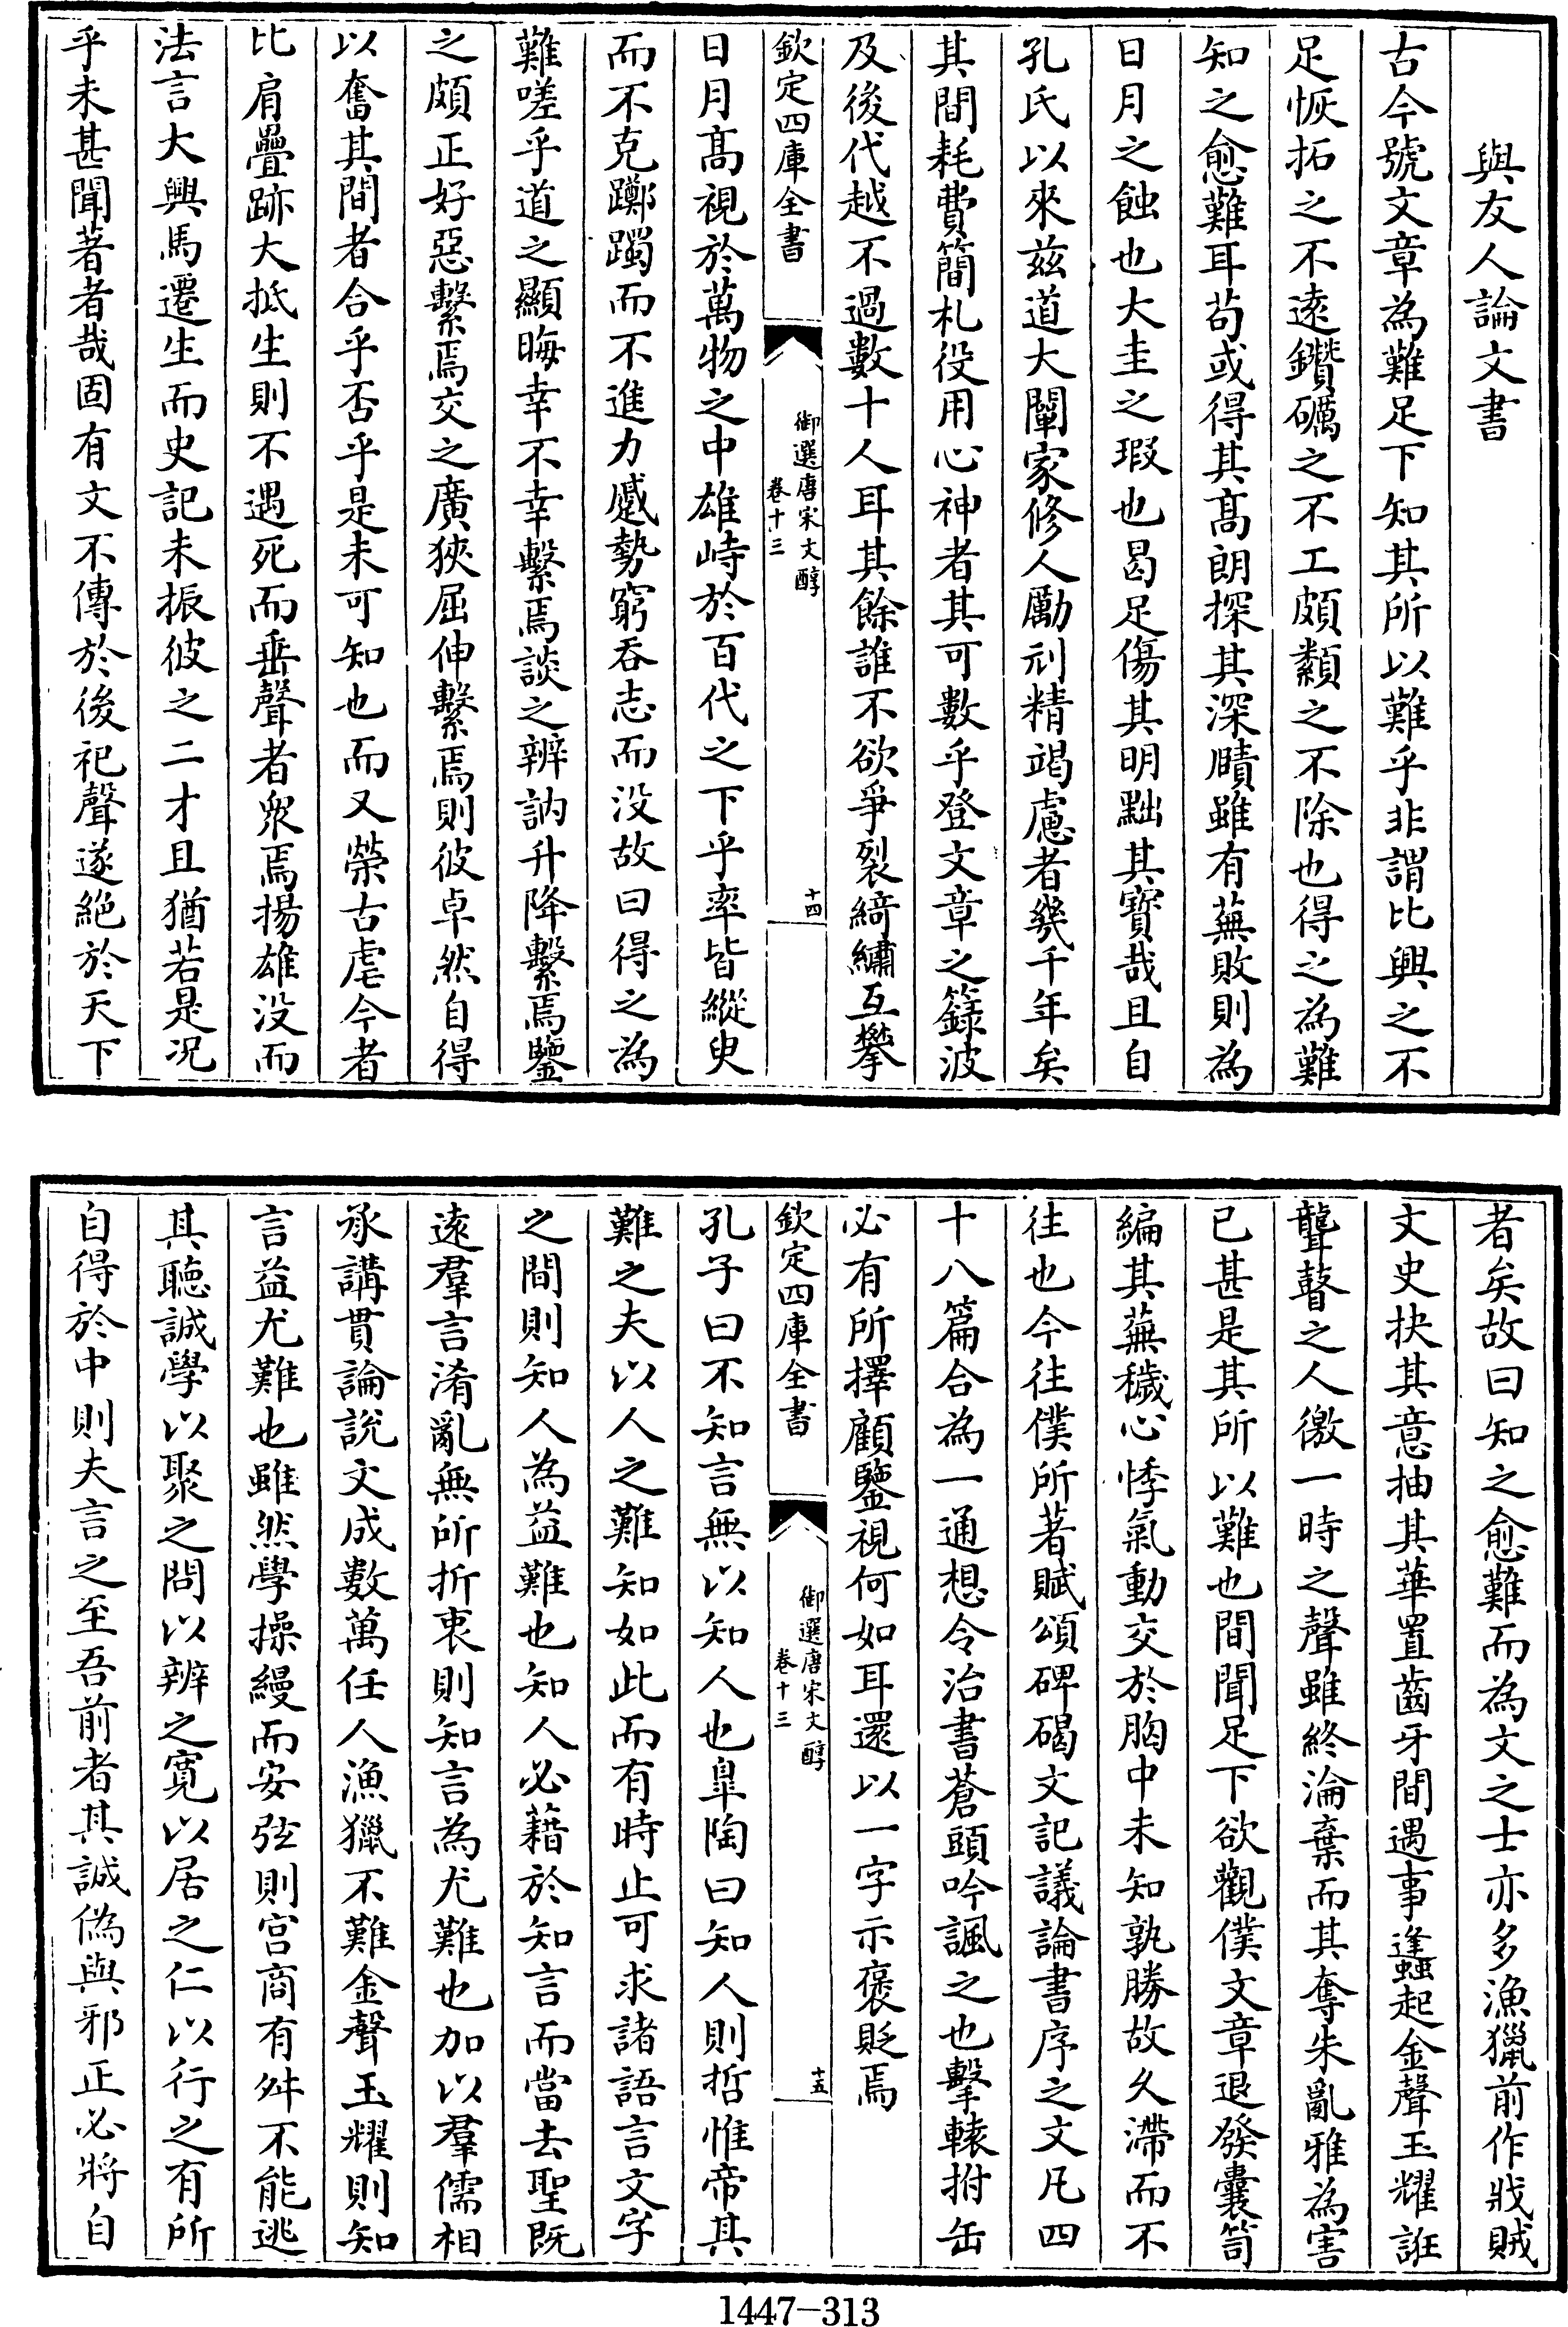 與友人論文書
古今號文章為難足下知其所以難乎非謂比興之不
足恢拓之不遠鑽礪之不工頗纇之不除也得之為難
知之愈難耳茍或得其髙朗探其深賾雖有蕪敗則為
日月之蝕也大圭之瑕也曷足傷其明黜其寳哉且自
孔氏以來兹道大闡家修人勵刓精竭慮者幾千年矣
其間耗費簡札役用心神者其可數乎登文章之籙波
及後代越不過數十人耳其餘誰不欲爭裂綺繡互攀
欽定四庫全書
御選唐宋文醇
卷十三
十四
日月髙視於萬物之中雄峙於百代之下乎率皆縱臾
而不克躑躅而不進力蹙勢窮吞志而没故曰得之為
難嗟乎道之顯晦幸不幸繫焉談之辨訥升降繫焉鑒
之頗正好惡繫焉交之廣狹屈伸繫焉則彼卓然自得
以奮其間者合乎否乎是未可知也而又榮古虐今者
比肩疊跡大抵生則不遇死而垂聲者衆焉揚雄没而
法言大興馬遷生而史記未振彼之二才且猶若是况
乎未甚聞著者哉固有文不傳於後祀聲遂絶於天下
者矣故曰知之愈難而為文之士亦多漁獵前作戕賊
文史抉其意抽其華置齒牙間遇事蠭起金聲玉耀誑
聾瞽之人徼一時之聲雖終淪棄而其奪朱亂雅為害
已甚是其所以難也間聞足下欲觀僕文章退發囊笥
編其蕪穢心悸氣動交於胸中未知孰勝故久滯而不
往也今往僕所著賦頌碑碣文記議論書序之文凡四
十八篇合為一通想令治書蒼頭吟諷之也擊轅拊缶
必有所擇顧鑒視何如耳還以一字示褒貶焉
欽定四庫全書
御選唐宋文醇
卷十三
十五
孔子曰不知言無以知人也臯陶曰知人則哲惟帝其
難之夫以人之難知如此而有時止可求諸語言文字
之間則知人為益難也知人必藉於知言而當去聖既
遠羣言淆亂無所折衷則知言為尤難也加以羣儒相
承講貫論說文成數萬任人漁獵不難金聲玉耀則知
言益尤難也雖然學操縵而安弦則宫商有舛不能逃
其聽誠學以聚之問以辨之寛以居之仁以行之有所
自得於中則夫言之至吾前者其誠偽與邪正必將自
1447-313